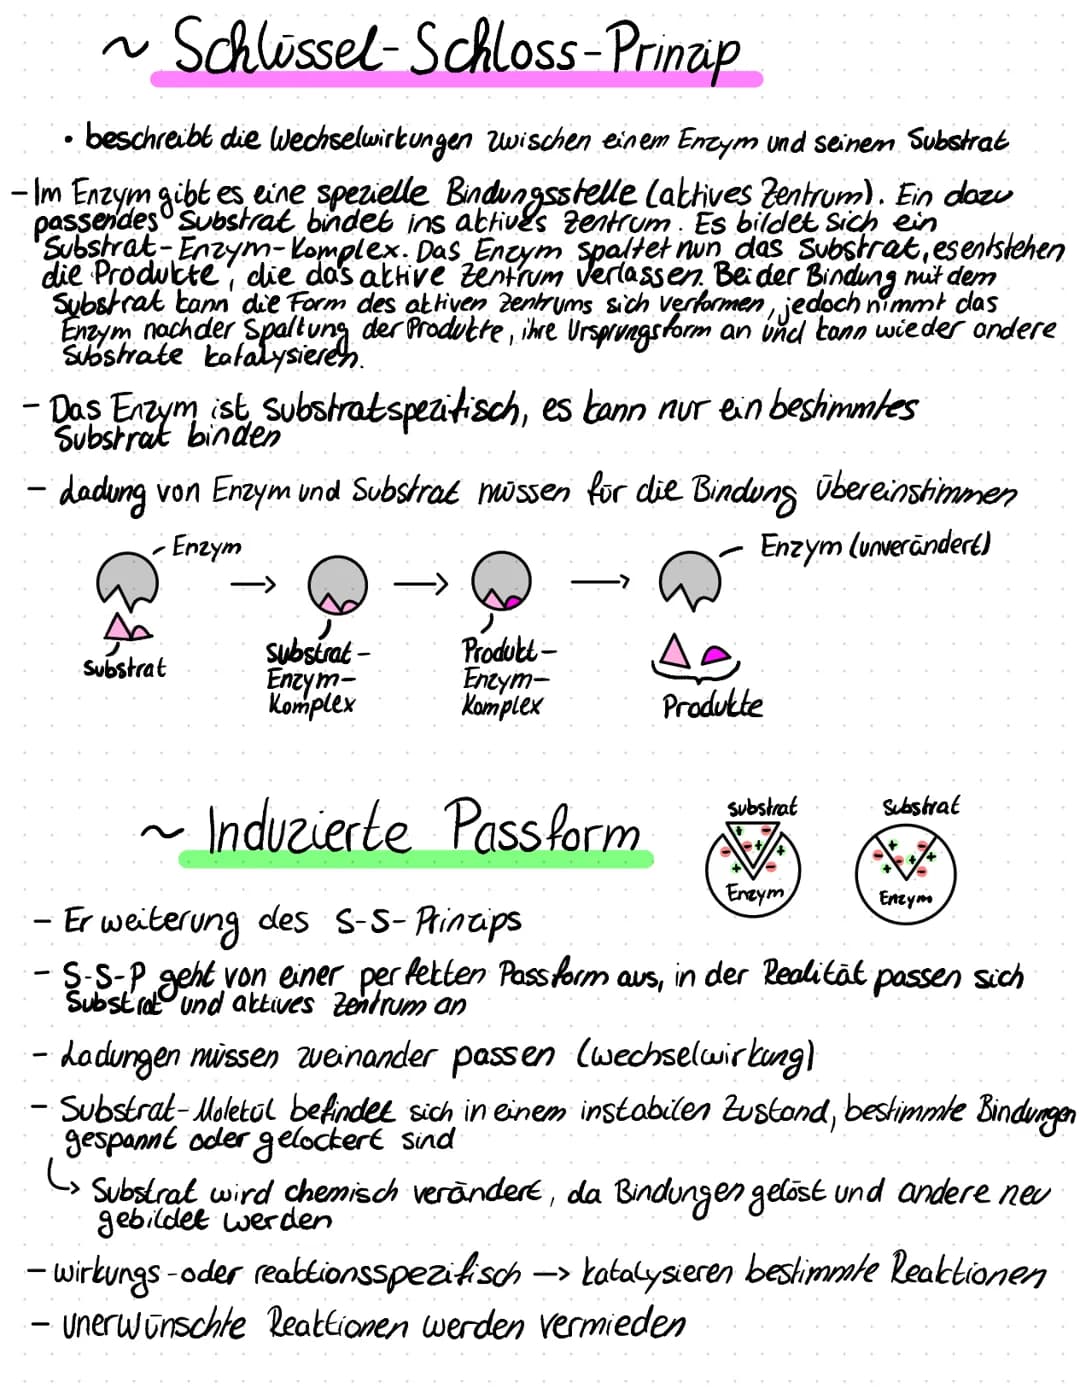 ~ Schlüssel-Schloss-Prinzip
• beschreibt die Wechselwirkungen zwischen einem Enzym und seinem Substrat
- Im Enzym gibt es eine spezielle Bindungsstelle (aktives Zentrum). Ein dazu
passendes Substrat bindet ins aktives Zentrum. Es bildet sich ein
Substrat-Enzym-Komplex. Das Enzym spaltet nun das Substrat, es entstehen
die Produkte, die das aktive Zentrum verlassen. Bei der Bindung mit dem
Substrat kann die Form des aktiven Zentrums sich verformen, jedoch nimmt das
Enzym nach der Spaltung der Produkte, ihre Ursprungsform an und kann wieder andere
Substrate katalysieren.
- Das Enzym ist substratspezifisch, es kann nur ein bestimmtes
Substrat binden
- Ladung von Enzym und Substrat müssen für die Bindung übereinstimmen
Enzym
Enzym (unverändert)
Substrat
Substrat-
Enzym-
Komplex
Produkt-
Enzym-
Komplex
Produkte
~ Induzierte Passform
Substrat
Enzym
Substrat
Enzym
- Erweiterung des S-S-Prinzips
- S-S-P geht von einer perfekten Passform aus, in der Realität passen sich
Substrat und aktives Zentrum an
- Ladungen müssen zueinander passen (wechselwirkung)
- Substrat-Molekül befindet sich in einem instabilen Zustand, bestimmte Bindungen
gespannt oder gelockert sind
↳ Substrat wird chemisch verändert, da Bindungen gelöst und andere neu
gebildet werden
- wirkungs-oder reaktionsspezifisch -> katalysieren bestimmte Reaktionen
- unerwünschte Reaktionen werden vermieden